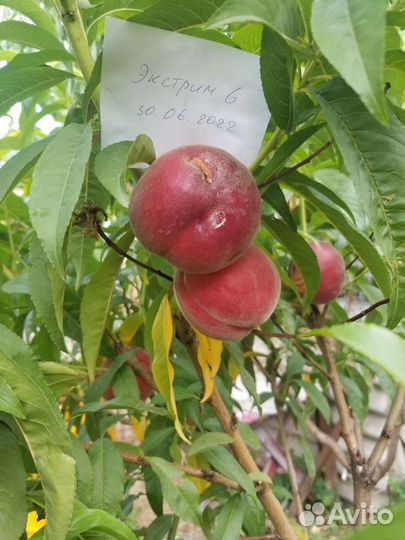 Экстрим 6
30.06.2022
Avito